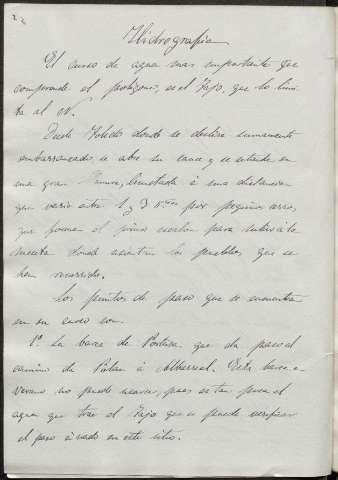 Hidrografia
El curso de agua mas importante que
comprende el poligono, es el Tajo, que lo limi-
ta al N.
Desde Toledo donde se desliza sumamente
embarrancado, se abre su cauce y se extiende en
una gran llanura, limitada á una distancia
que varia entre 1 y 3 por pequeños
que forman el para subir á la
meseta donde asientan los pueblos que se
han recorrido.
Los puntos de paso que se encuentra
en su curso son.
1º La barca de que da paso al
camino de á Albarreal. Esta barca en
verano no puede usarse, pues es tan poca el
agua que trae el Tajo que se puede verificar
el paso á vado en este sitio.